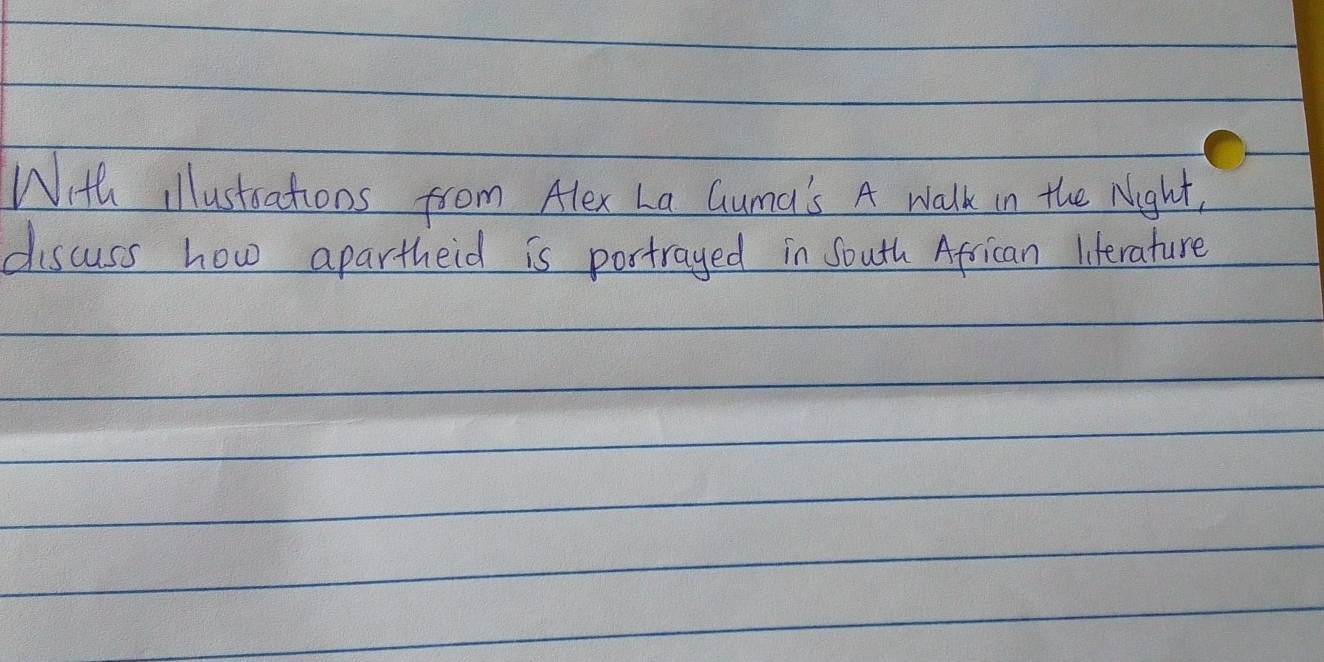 With illustrations from Alex La Guma's A Walk in the Night,
discuss how apartheid is portrayed in South African literature